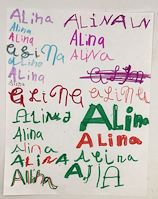 ALiNA
ALINALN
Alina
Alina
Alina
Alina
ALiNA
ALiNA
aLiNa
Alina
Alina
ALINA
aLiNa
aLiNa
ALiNa
ALina
Alina
Alina
Alina
ALINA
Alina
Alina
AlIA